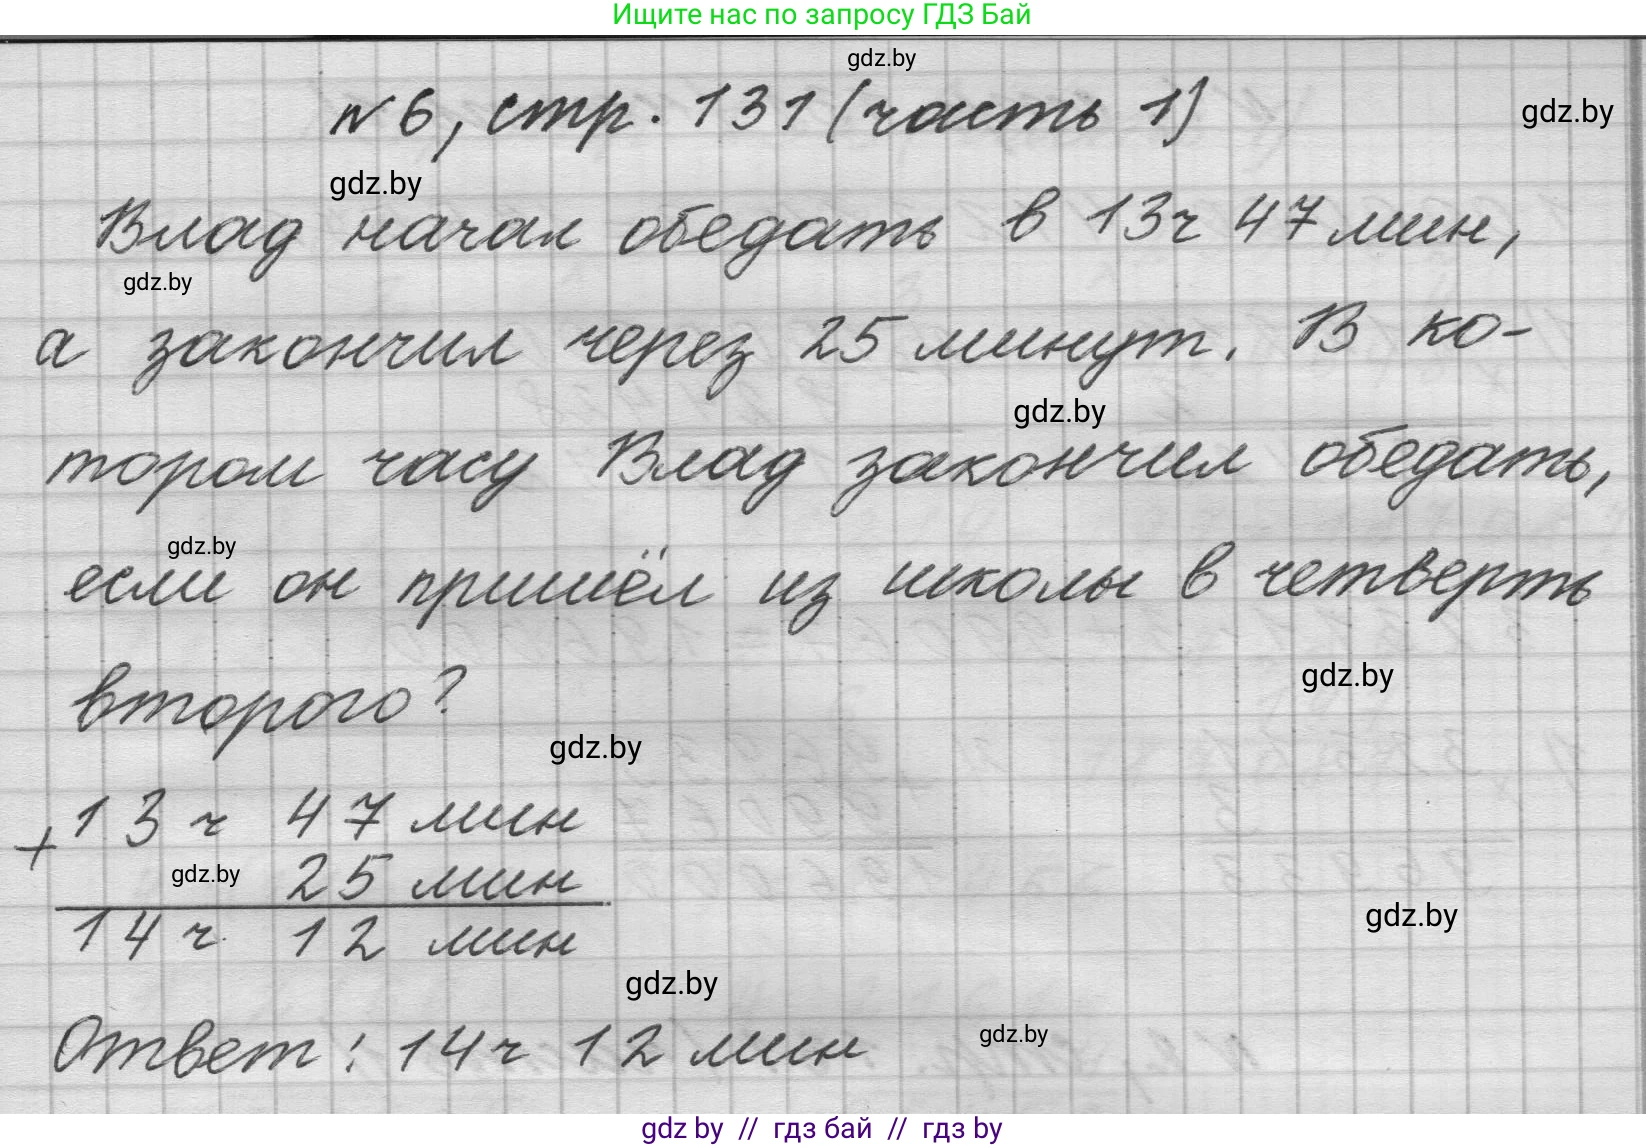 Ищите нас по запросу ГДЗ Бай
gdz.by
№6, стр. 131 (часть 1)
gdz.by
gdz.by
Влад начал обедать в 13ч 47 мин,
gdz.by
а закончил через 25 минут. В ко-
gdz.by
тором часу Влад закончил обедать,
gdz.by
если он пришёл из школы в четверть
gdz.by
второго?
gdz.by
+ 13 ч 47 мин
gdz.by 25 мин
14 ч 12 мин
gdz.by
gdz.by
Ответ: 14 ч 12 мин
gdz.by
gdz by // гдз бай // гдз by